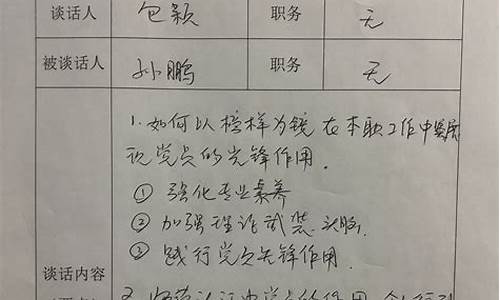 谈话人 包颖 职务 无
被谈话人 孙鹏 职务 无
1.如何以榜样为镜在本职工作中
现党员的先锋作用.
① 强化专业素养
② 加强理论武装头脑.
③ 践行党员先锋作用.
谈话内容